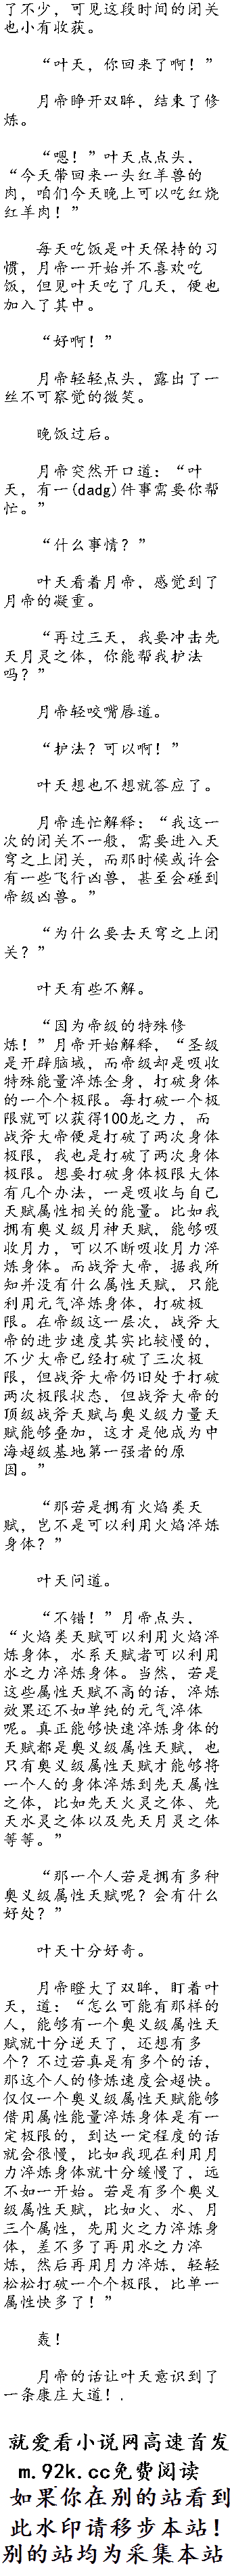 了不少，可见这段时间的闭关
也小有收获。
“叶天，你回来了啊！”
月帝睁开双眸，结束了修
炼。
“嗯！”叶天点点头，
“今天带回来一头红羊兽的
肉，咱们今天晚上可以吃红烧
红羊肉！”
每天吃饭是叶天保持的习
惯，月帝一开始并不喜欢吃
饭，但见叶天吃了几天，便也
加入了其中。
“好啊！”
月帝轻轻点头，露出了一
丝不可察觉的微笑。
晚饭过后。
月帝突然开口道：“叶
天，有一(dadg)件事需要你帮
忙。”
“什么事情？”
叶天看着月帝，感觉到了
月帝的凝重。
“再过三天，我要冲击先
天月灵之体，你能帮我护法
吗？”
月帝轻咬嘴唇道。
“护法？可以啊！”
叶天想也不想就答应了。
月帝连忙解释：“我这一
次的闭关不一般，需要进入天
穹之上闭关，而那时候或许会
有一些飞行凶兽，甚至会碰到
帝级凶兽。”
“为什么要去天穹之上闭
关？”
叶天有些不解。
“因为帝级的特殊修
炼！”月帝开始解释，“圣级
是开辟脑域，而帝级却是吸收
特殊能量淬炼全身，打破身体
的一个个极限。每打破一个极
限就可以获得100龙之力，而
战斧大帝便是打破了两次身体
极限，我也是打破了两次身体
极限。想要打破身体极限大体
有几个办法，一是吸收与自己
天赋属性相关的能量。比如我
拥有奥义级月神天赋，能够吸
收月力，可以不断吸收月力淬
炼身体。而战斧大帝，据我所
知并没有什么属性天赋，只能
利用元气淬炼身体，打破极
限。在帝级这一层次，战斧大
帝的进步速度其实比较慢的，
不少大帝已经打破了三次极
限，但战斧大帝仍旧处于打破
两次极限状态，但战斧大帝的
顶级战斧天赋与奥义级力量天
赋能够叠加，这才是他成为中
海超级基地第一强者的原
因。”
“那若是拥有火焰类天
赋，岂不是可以利用火焰淬炼
身体？”
叶天问道。
“不错！”月帝点头，
“火焰类天赋可以利用火焰淬
炼身体，水系天赋者可以利用
水之力淬炼身体。当然，若是
这些属性天赋不高的话，淬炼
效果还不如单纯的元气淬体
呢。真正能够快速淬炼身体的
天赋都是奥义级属性天赋，也
只有奥义级属性天赋才能够将
一个人的身体淬炼到先天属性
之体，比如先天火灵之体、先
天水灵之体以及先天月灵之体
等等。”
“那一个人若是拥有多种
奥义级属性天赋呢？会有什么
好处？”
叶天十分好奇。
月帝瞪大了双眸，盯着叶
天，道：“怎么可能有那样的
人，能够有一个奥义级属性天
赋就十分逆天了，还想有多
个？不过若真是有多个的话，
那这个人的修炼速度会超快。
仅仅一个奥义级属性天赋能够
借用属性能量淬炼身体是有一
定极限的，到达一定程度的话
就会很慢，比如我现在利用月
力淬炼身体就十分缓慢了，远
不如一开始。若是有多个奥义
级属性天赋，比如火、水、月
三个属性，先用火之力淬炼身
体，差不多了再用水之力淬
炼，然后再用月力淬炼，轻轻
松松打破一个个极限，比单一
属性快多了！”
轰！
月帝的话让叶天意识到了
一条康庄大道！.
就爱看小说网高速首发
m.92k.cc免费阅读
如果你在别的站看到
此水印请移步本站！
别的站均为采集本站